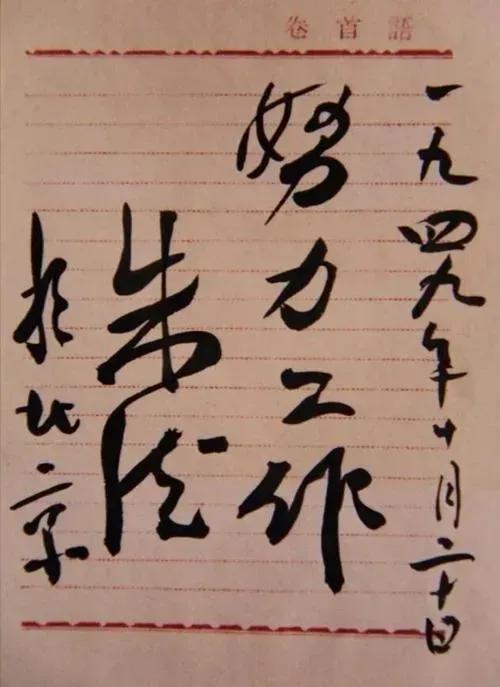 卷首語
一九四九年十月二十日
努力工作
朱德
於北京